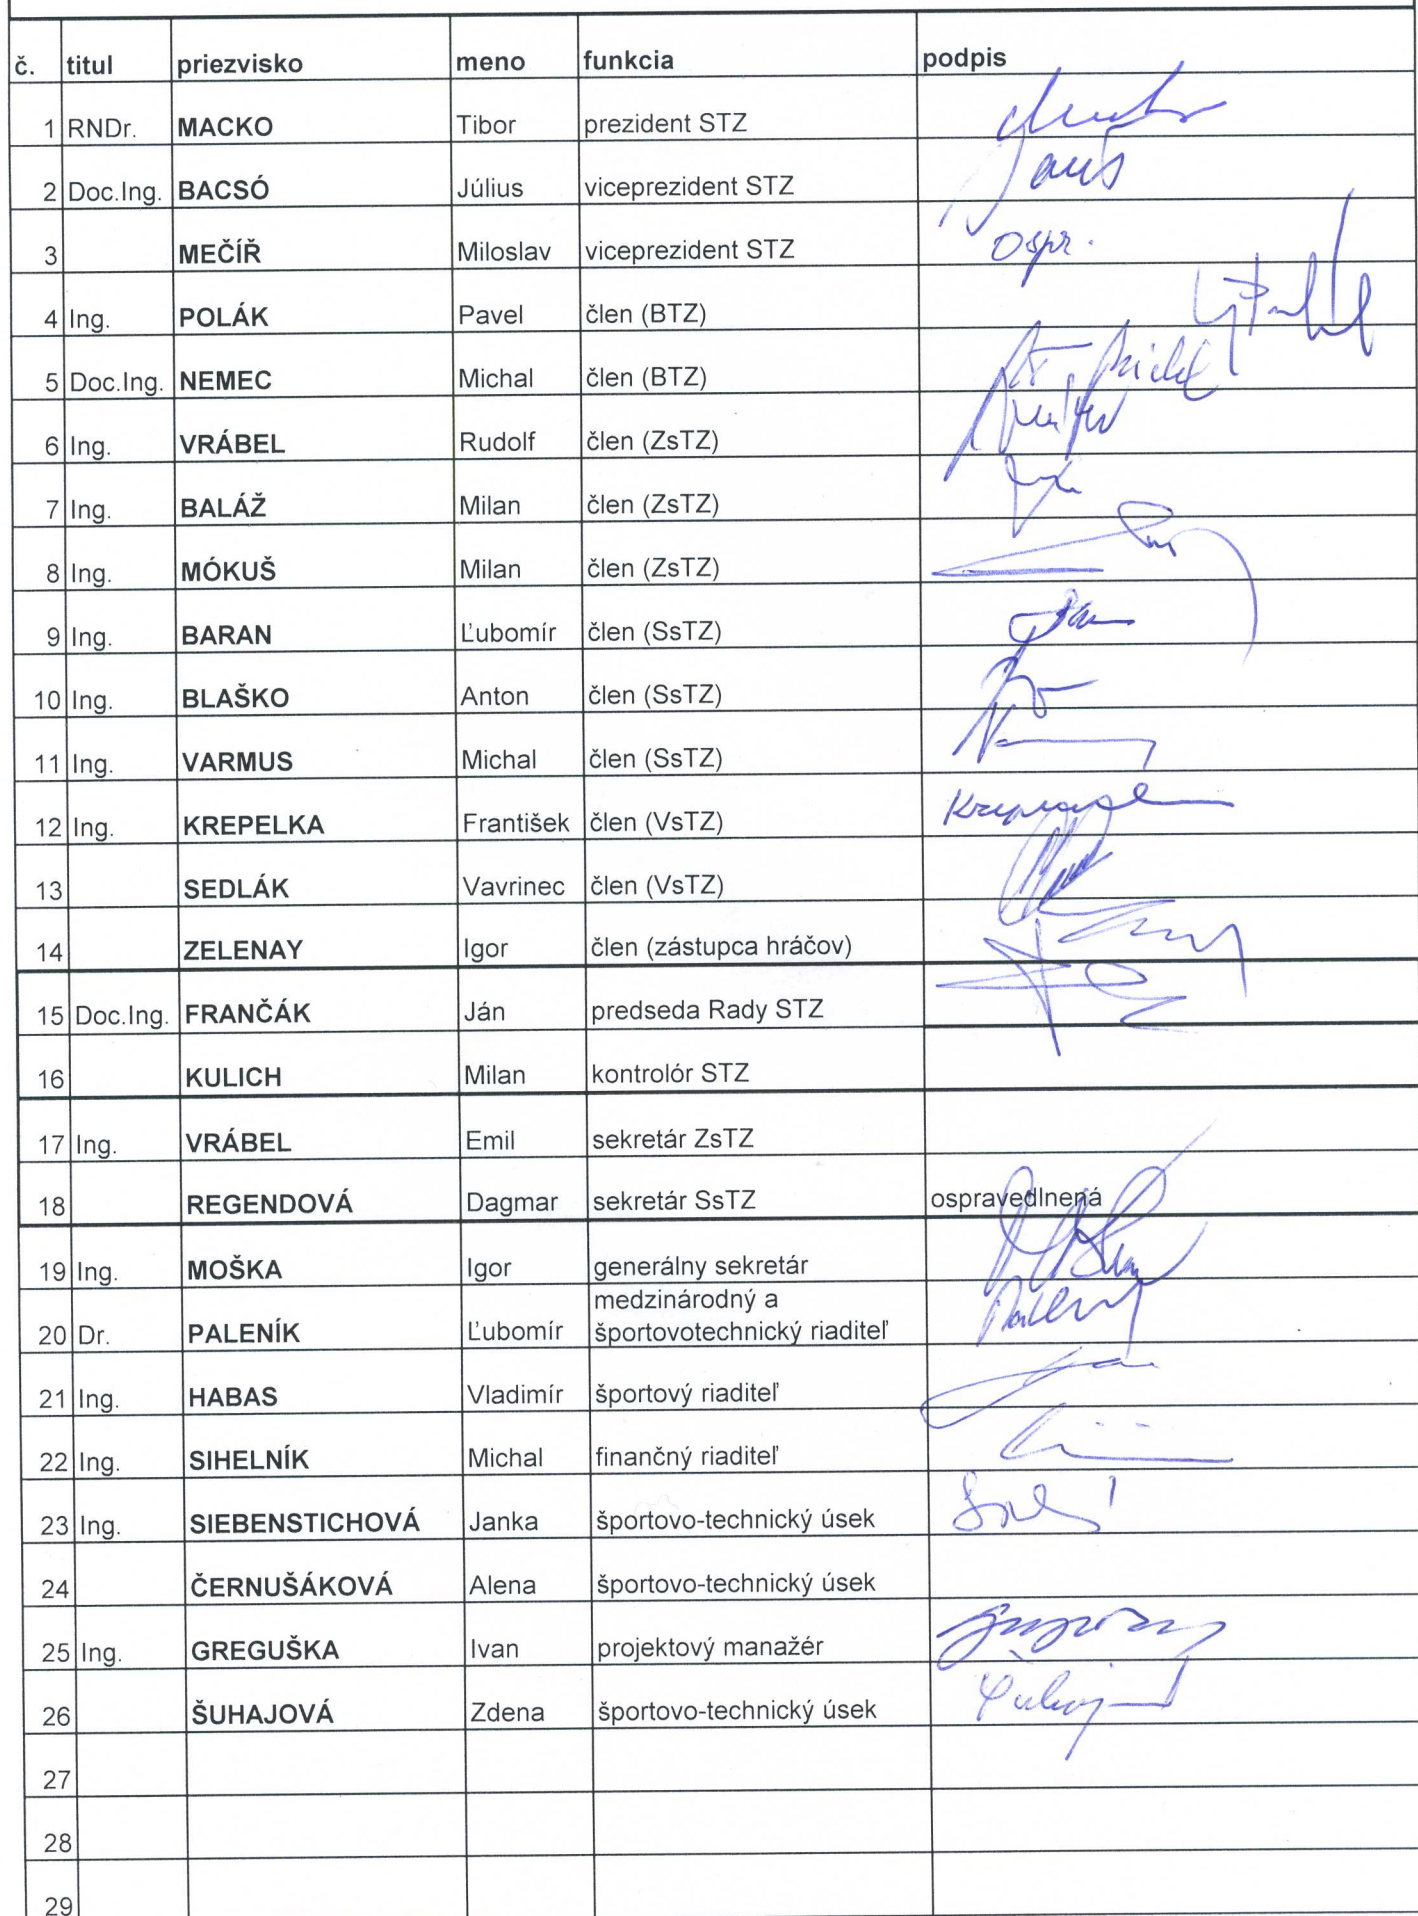 č. titul priezvisko meno funkcia podpis
1 RNDr. MACKO Tibor prezident STZ
2 Doc.Ing. BACSÓ Július viceprezident STZ
3 MEČÍŘ Miloslav viceprezident STZ Ospr.
4 Ing. POLÁK Pavel člen (BTZ)
5 Doc.Ing. NEMEC Michal člen (BTZ)
6 Ing. VRÁBEL Rudolf člen (ZsTZ)
7 Ing. BALÁŽ Milan člen (ZsTZ)
8 Ing. MÓKUŠ Milan člen (ZsTZ)
9 Ing. BARAN Ľubomír člen (SsTZ)
10 Ing. BLAŠKO Anton člen (SsTZ)
11 Ing. VARMUS Michal člen (SsTZ)
12 Ing. KREPELKA František člen (VsTZ)
13 SEDLÁK Vavrinec člen (VsTZ)
14 ZELENAY Igor člen (zástupca hráčov)
15 Doc.Ing. FRANČÁK Ján predseda Rady STZ
16 KULICH Milan kontrolór STZ
17 Ing. VRÁBEL Emil sekretár ZsTZ
18 REGENDOVÁ Dagmar sekretár SsTZ ospravedlnená
19 Ing. MOŠKA Igor generálny sekretár
medzinárodný a
20 Dr. PALENÍK Ľubomír športovotechnický riaditeľ
21 Ing. HABAS Vladimír športový riaditeľ
22 Ing. SIHELNÍK Michal finančný riaditeľ
23 Ing. SIEBENSTICHOVÁ Janka športovo-technický úsek
24 ČERNUŠÁKOVÁ Alena športovo-technický úsek
25 Ing. GREGUŠKA Ivan projektový manažér
26 ŠUHAJOVÁ Zdena športovo-technický úsek
27
28
29